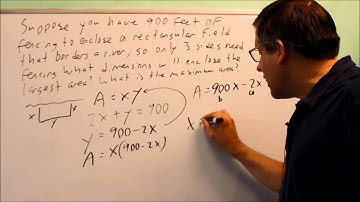 Suppose you have 900 feet of
fencing to enclose a rectangular field
that borders a river, so only 3 sides need
fencing. What dimensions will enclose the
largest area? What is the maximum area?
x x
y
A = xy
2x + y = 900
y = 900 - 2x
A = x(900 - 2x)
A = 900x - 2x
b a
x